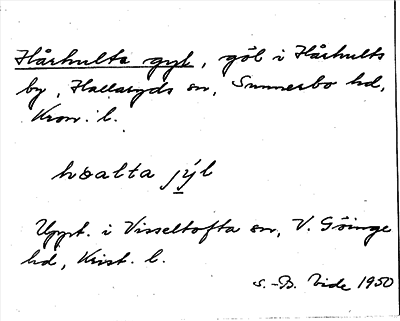 Hårhulta gyl, göl i Hårhults
by, Hallaryds sn, Sunnerbo hd,
Kron. l.
hoalta jýl
Uppt. i Visseltofta sn, V. Göinge
hd, Krist. l.
S.-B. Vide 1950